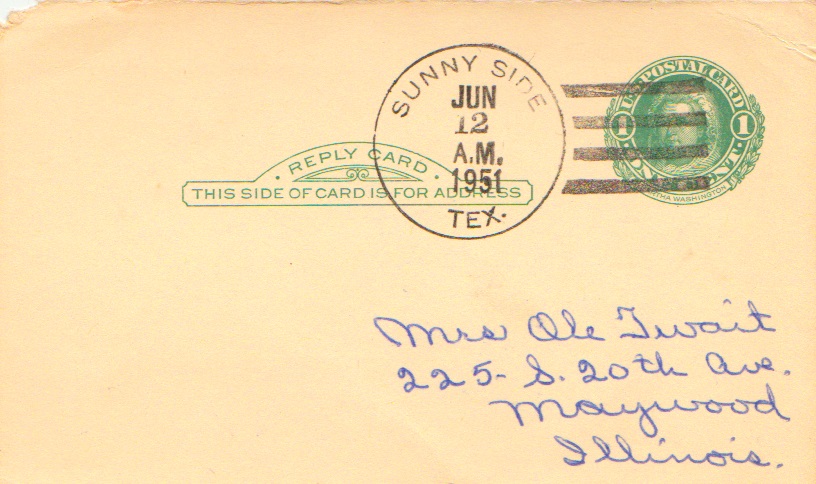 SUNNY SIDE
JUN
12
A.M.
1951
TEX.
U.S. POSTAL CARD
1 1
ONE CENT
MARTHA WASHINGTON
· REPLY CARD ·
THIS SIDE OF CARD IS FOR ADDRESS
Mrs Ole Twait
225- S. 20th Ave.
Maywood
Illinois.